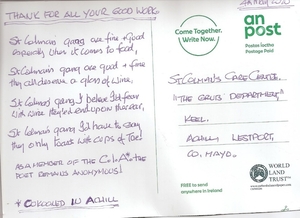 THANK FOR ALL YOUR GOOD WORK.
St Colman's gang are fine & good
especially when it comes to food,
St Colman's gang are good & fine
they all deserve a glass of wine,
St Colman's gang I believe I'd fear
with wine they'd end up
St Colman's gang I'd have to say
they only toast with cups of Tea!
AS A MEMBER OF THE THE
POET REMAINS ANONYMOUS!
* COCOONED IN ACHILL
Come Together.
Write Now.
an
post
Postas Íoctha
Postage Paid
ST. COLMAN'S CARE CENTRE.
"THE GRUB DEPARTMENT"
KEEL.
ACHILL, WESTPORT,
CO. MAYO.
FREE to send
anywhere in Ireland
WORLD
LAND
TRUST™